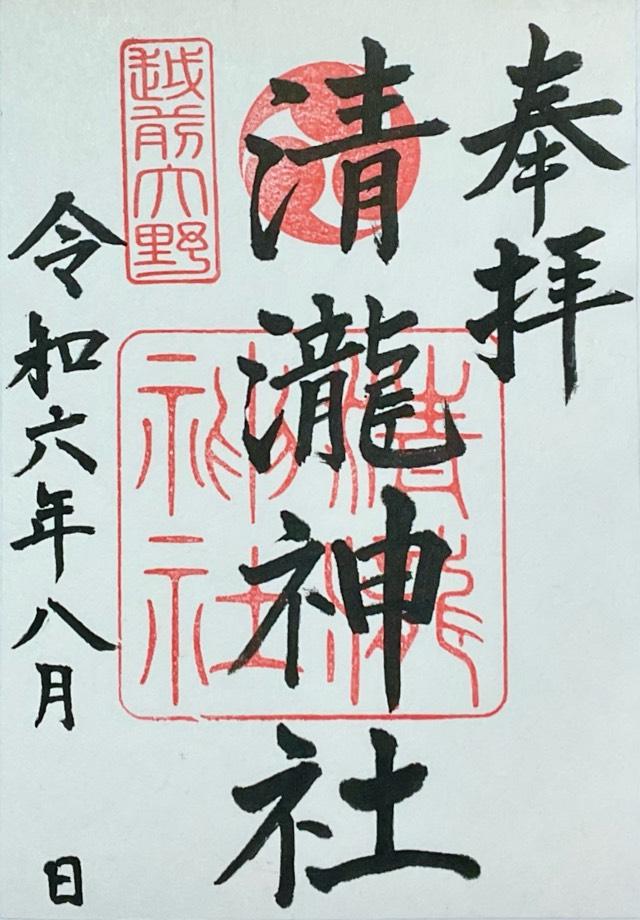 奉拝
清瀧神社
越前大野
清瀧
神社
令和六年八月 日